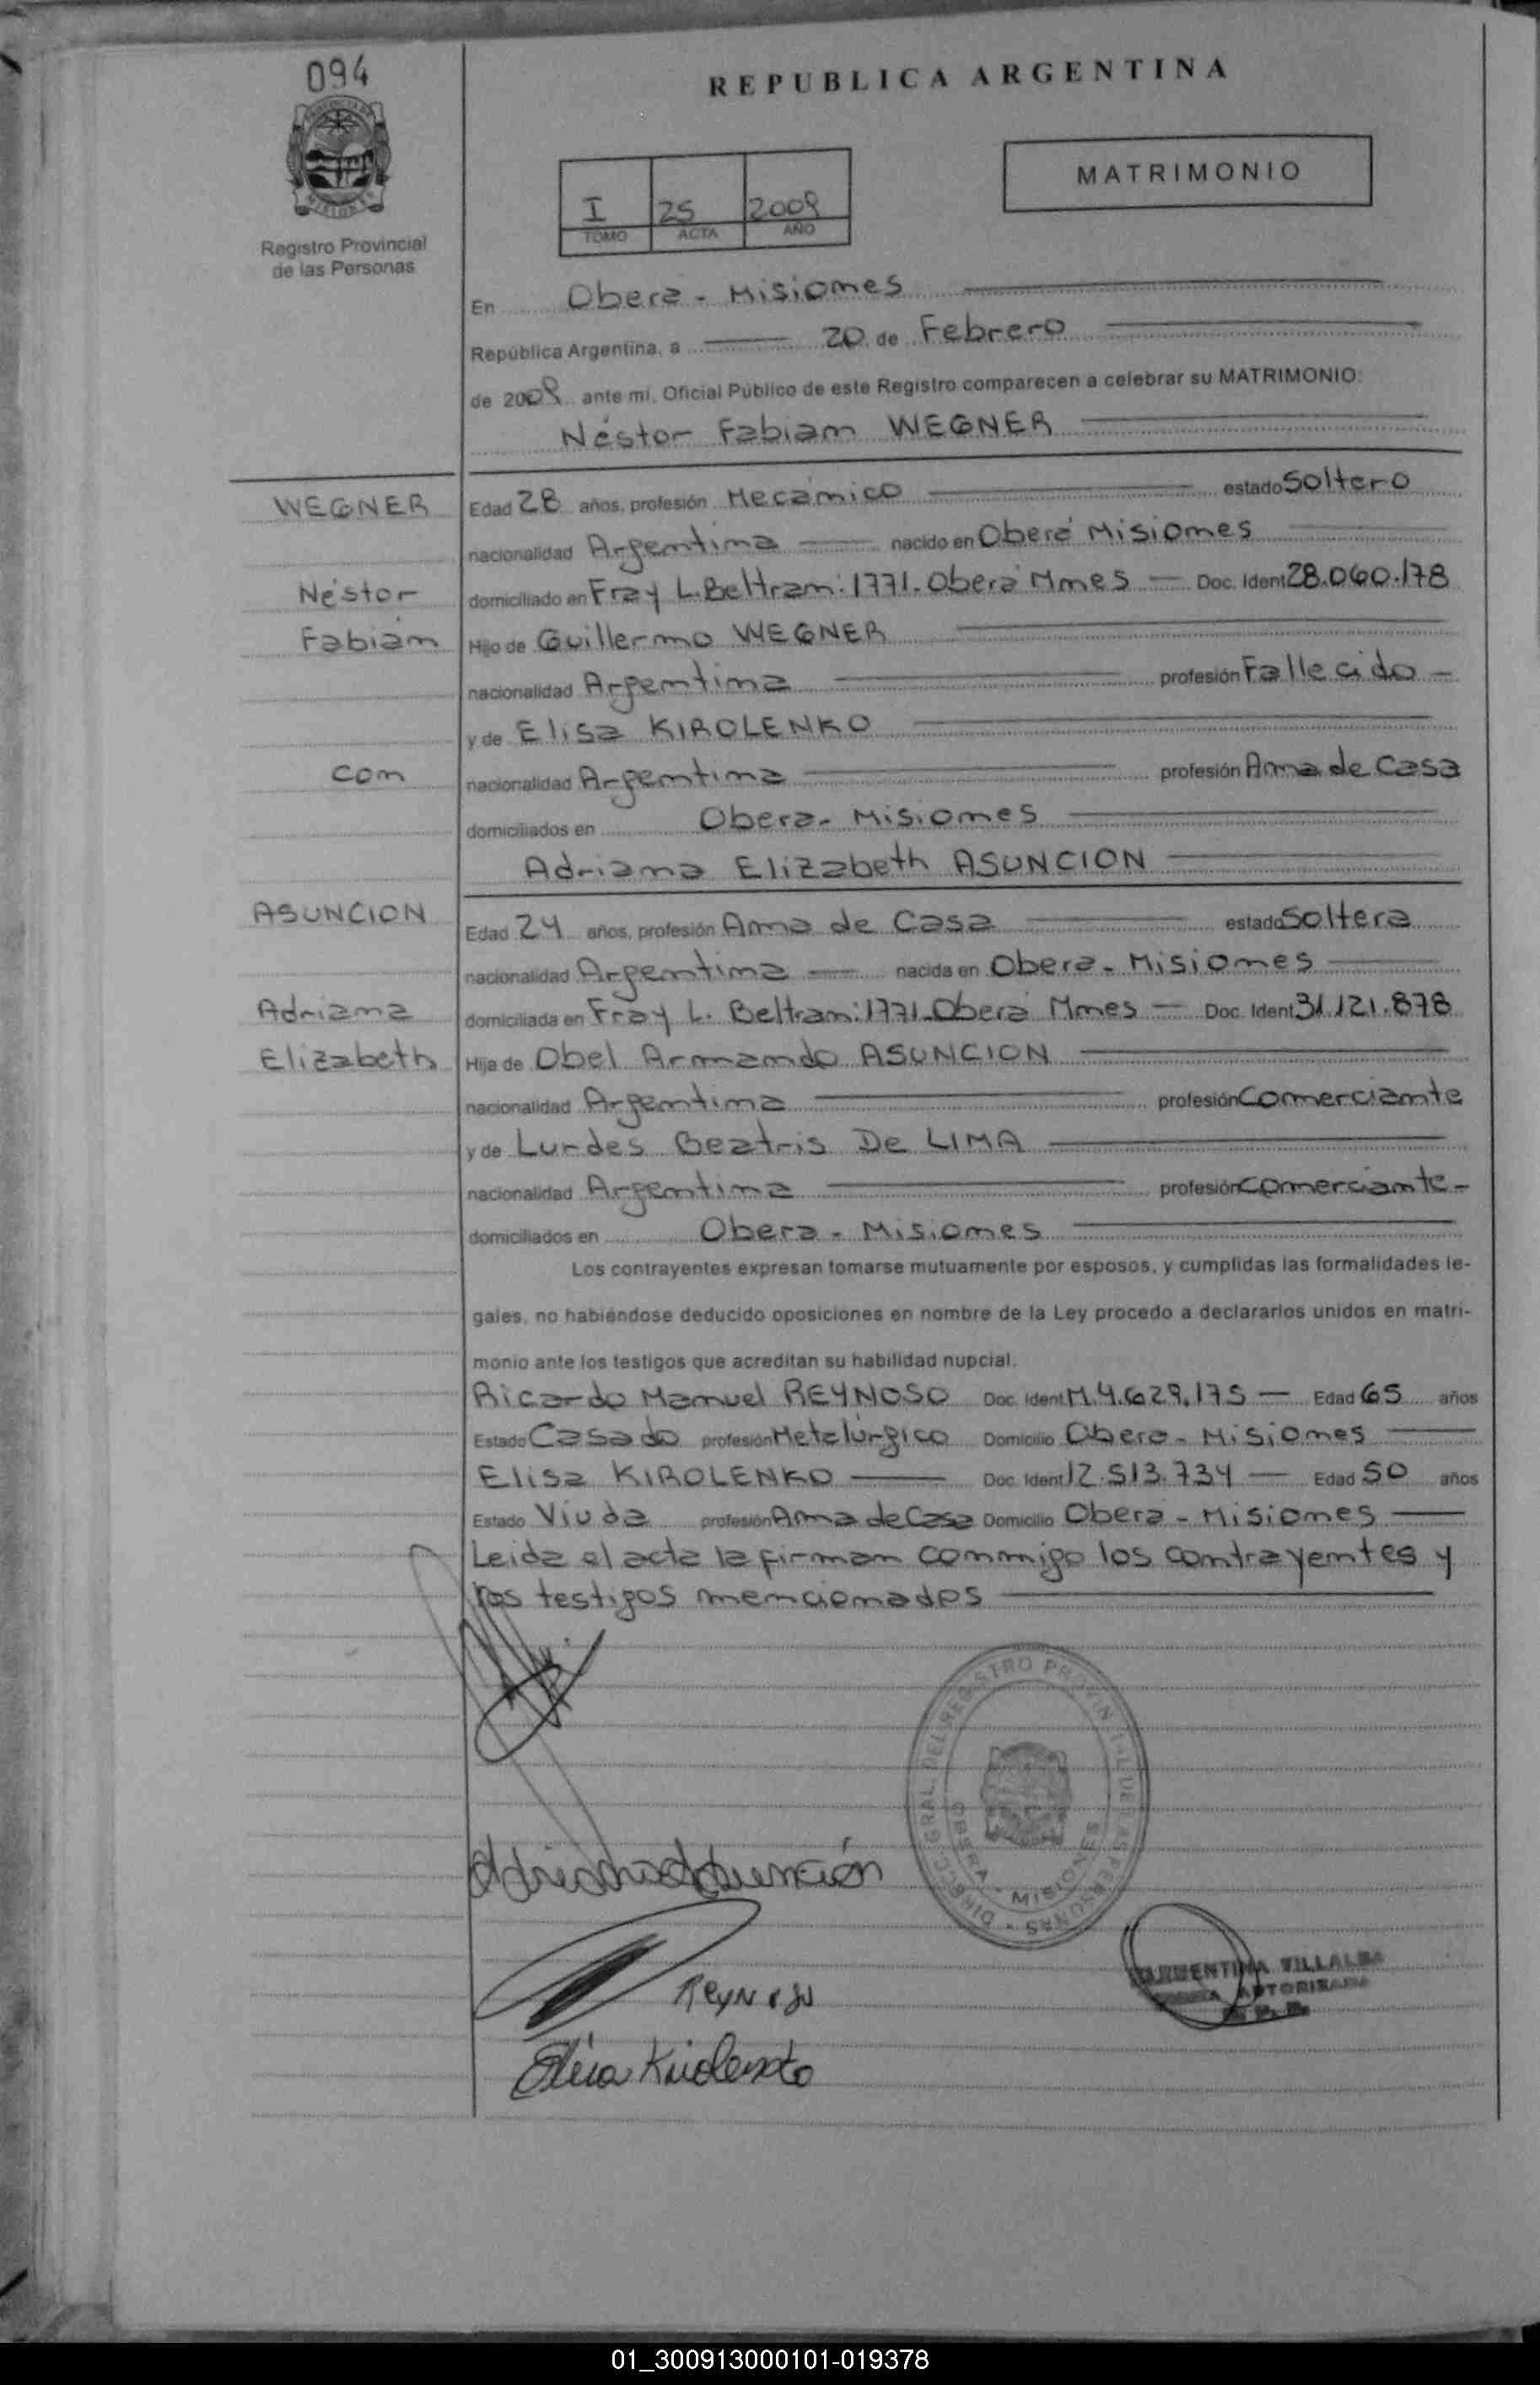 094
REPUBLICA ARGENTINA
MATRIMONIO
I 25 2009
TOMO ACTA AÑO
Registro Provincial
de las Personas
En Obera - Misiones
República Argentina, a 20 de Febrero
de 2009 ante mí, Oficial Público de este Registro comparecen a celebrar su MATRIMONIO:
Néstor Fabian WEGNER
WEGNER
Edad 28 años, profesión Mecánico estado Soltero
nacionalidad Argentina nacido en Oberá Misiones
Néstor
domiciliado en Fray L. Beltran: 1771. Oberá Mnes Doc. Ident 28.060.178
Fabián
Hijo de Guillermo WEGNER
nacionalidad Argentina profesión Fallecido
y de Elisa KIROLENKO
con
nacionalidad Argentina profesión Ama de Casa
domiciliados en Obera - Misiones
Adriana Elizabeth ASUNCION
ASUNCION
Edad 24 años, profesión Ama de Casa estado Soltera
nacionalidad Argentina nacida en Obera - Misiones
Adriana
domiciliada en Fray L. Beltran: 1771 Oberá Mnes Doc. Ident 31.121.878
Elizabeth
Hija de Obel Armando ASUNCION
nacionalidad Argentina profesión Comerciante
y de Lurdes Beatris De LIMA
nacionalidad Argentina profesión Comerciante
domiciliados en Obera - Misiones
Los contrayentes expresan tomarse mutuamente por esposos, y cumplidas las formalidades le-
gales, no habiéndose deducido oposiciones en nombre de la Ley procedo a declararlos unidos en matri-
monio ante los testigos que acreditan su habilidad nupcial.
Ricardo Manuel REYNOSO Doc. Ident M. 4.629.175 Edad 65 años
Estado Casado profesión Metalúrgico Domicilio Obera - Misiones
Elisa KIROLENKO Doc. Ident 12.513.734 Edad 50 años
Estado Viuda profesión Ama de Casa Domicilio Obera - Misiones
Leida el acta la firman conmigo los contrayentes y
los testigos mencionados
DIRECC. GRAL. DEL REGISTRO PROVINCIAL DE LAS PERSONAS
OBERA - MISIONES
Adriana Asunción
Reynoso
VILLALBA
AUTORIZADA
Elisa Kirolenko
01_300913000101-019378